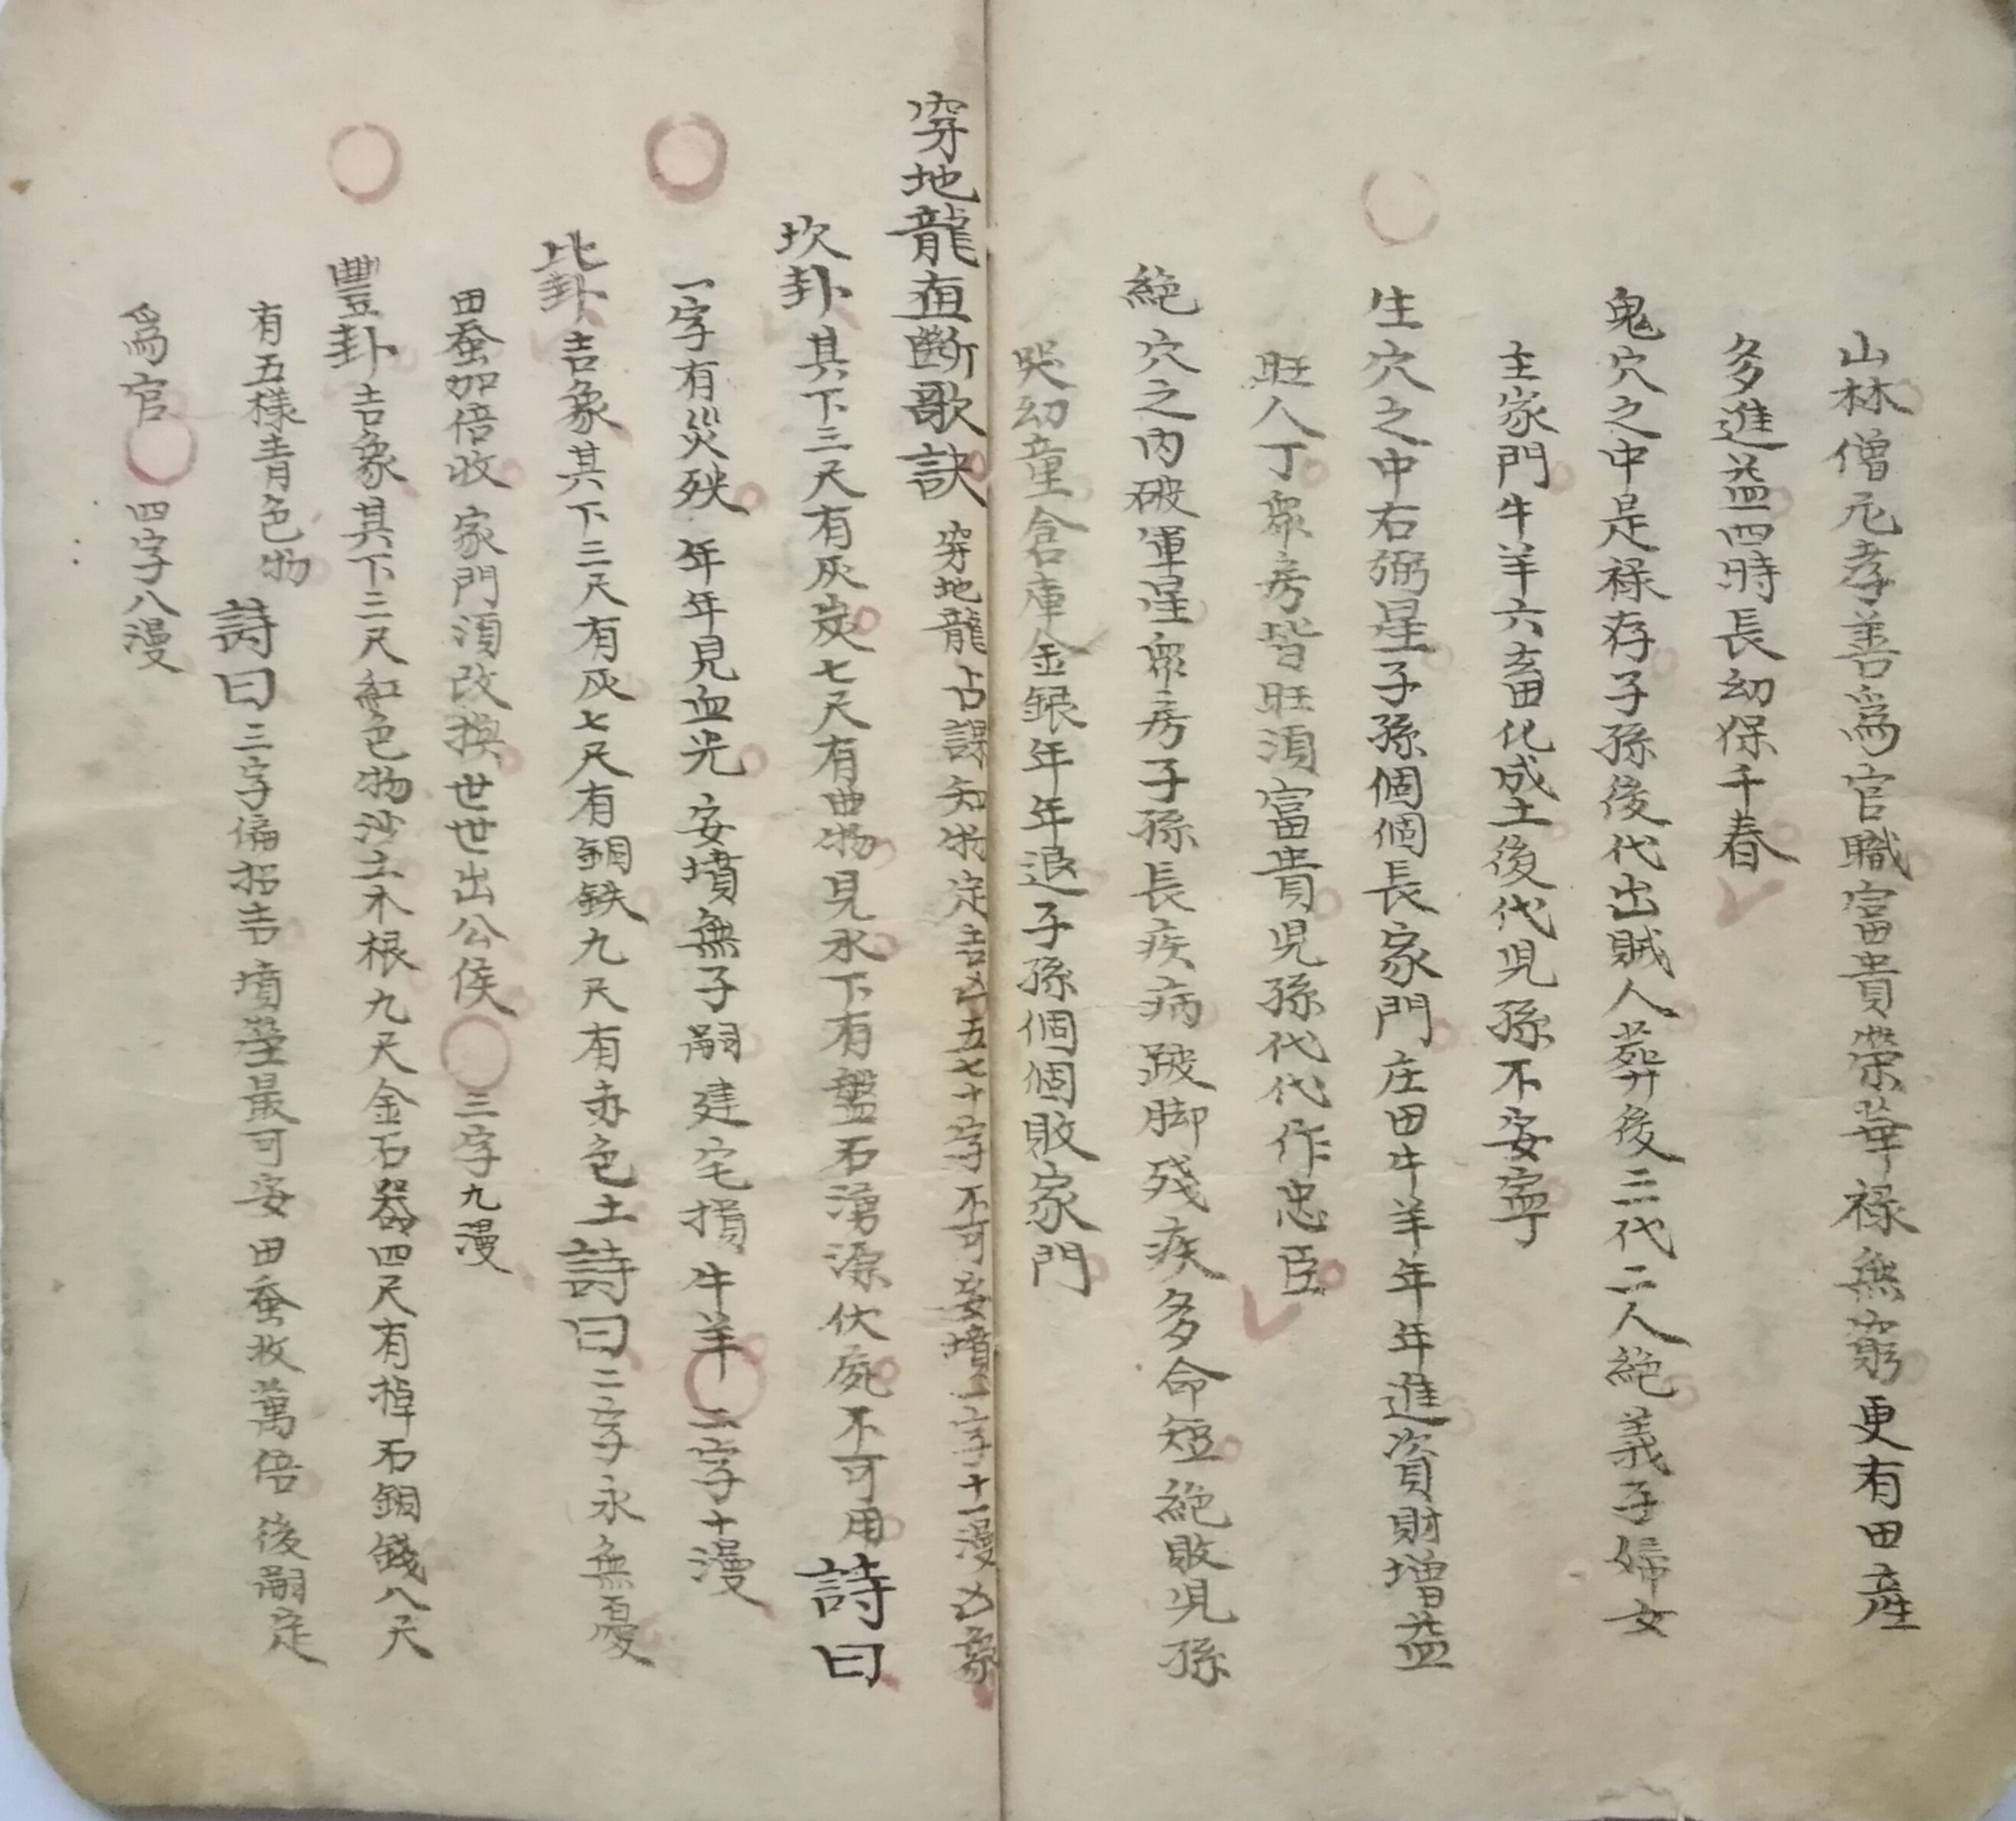 山林僧元孝善為官職富貴榮華禄無窮更有田產
多進益四時長幼保千春
鬼穴之中是禄存子孫後代出賊人葬後三代二人絕義子婦女
主家門牛羊六畜化成土後代児孫不安寧
生穴之中右弼星子孫個個長家門庄田牛羊年年進資財增益
旺人丁眾房皆旺須富貴児孫代代作忠臣
絕穴之內破軍星眾房子孫長疾病跛脚殘疾多命短絕敗児孫
哭幼童倉庫金銀年年退子孫個個敗家門
穿地龍直斷歌訣 穿地龍占課知物定吉凶五七十字不可安墳一字十一漫凶象
坎卦其下三尺有灰炭七尺有曲物見水下有盤石湧源伏屍不可用詩曰
一字有災殃年年見血光安墳無子嗣建宅損牛羊 二字十漫
比卦吉象其下三尺有灰七尺有銅鉄九尺有赤色土詩曰二字永無憂
田蚕加倍收家門須改換世世出公侯 三字九漫
豐卦吉象其下三尺紅色物沙土木根九尺金石器四尺有掉石銅錢八尺
有五樣青色物 詩曰三字偏招吉墳塋最可安田蚕收萬倍後嗣定
為官 四字八漫